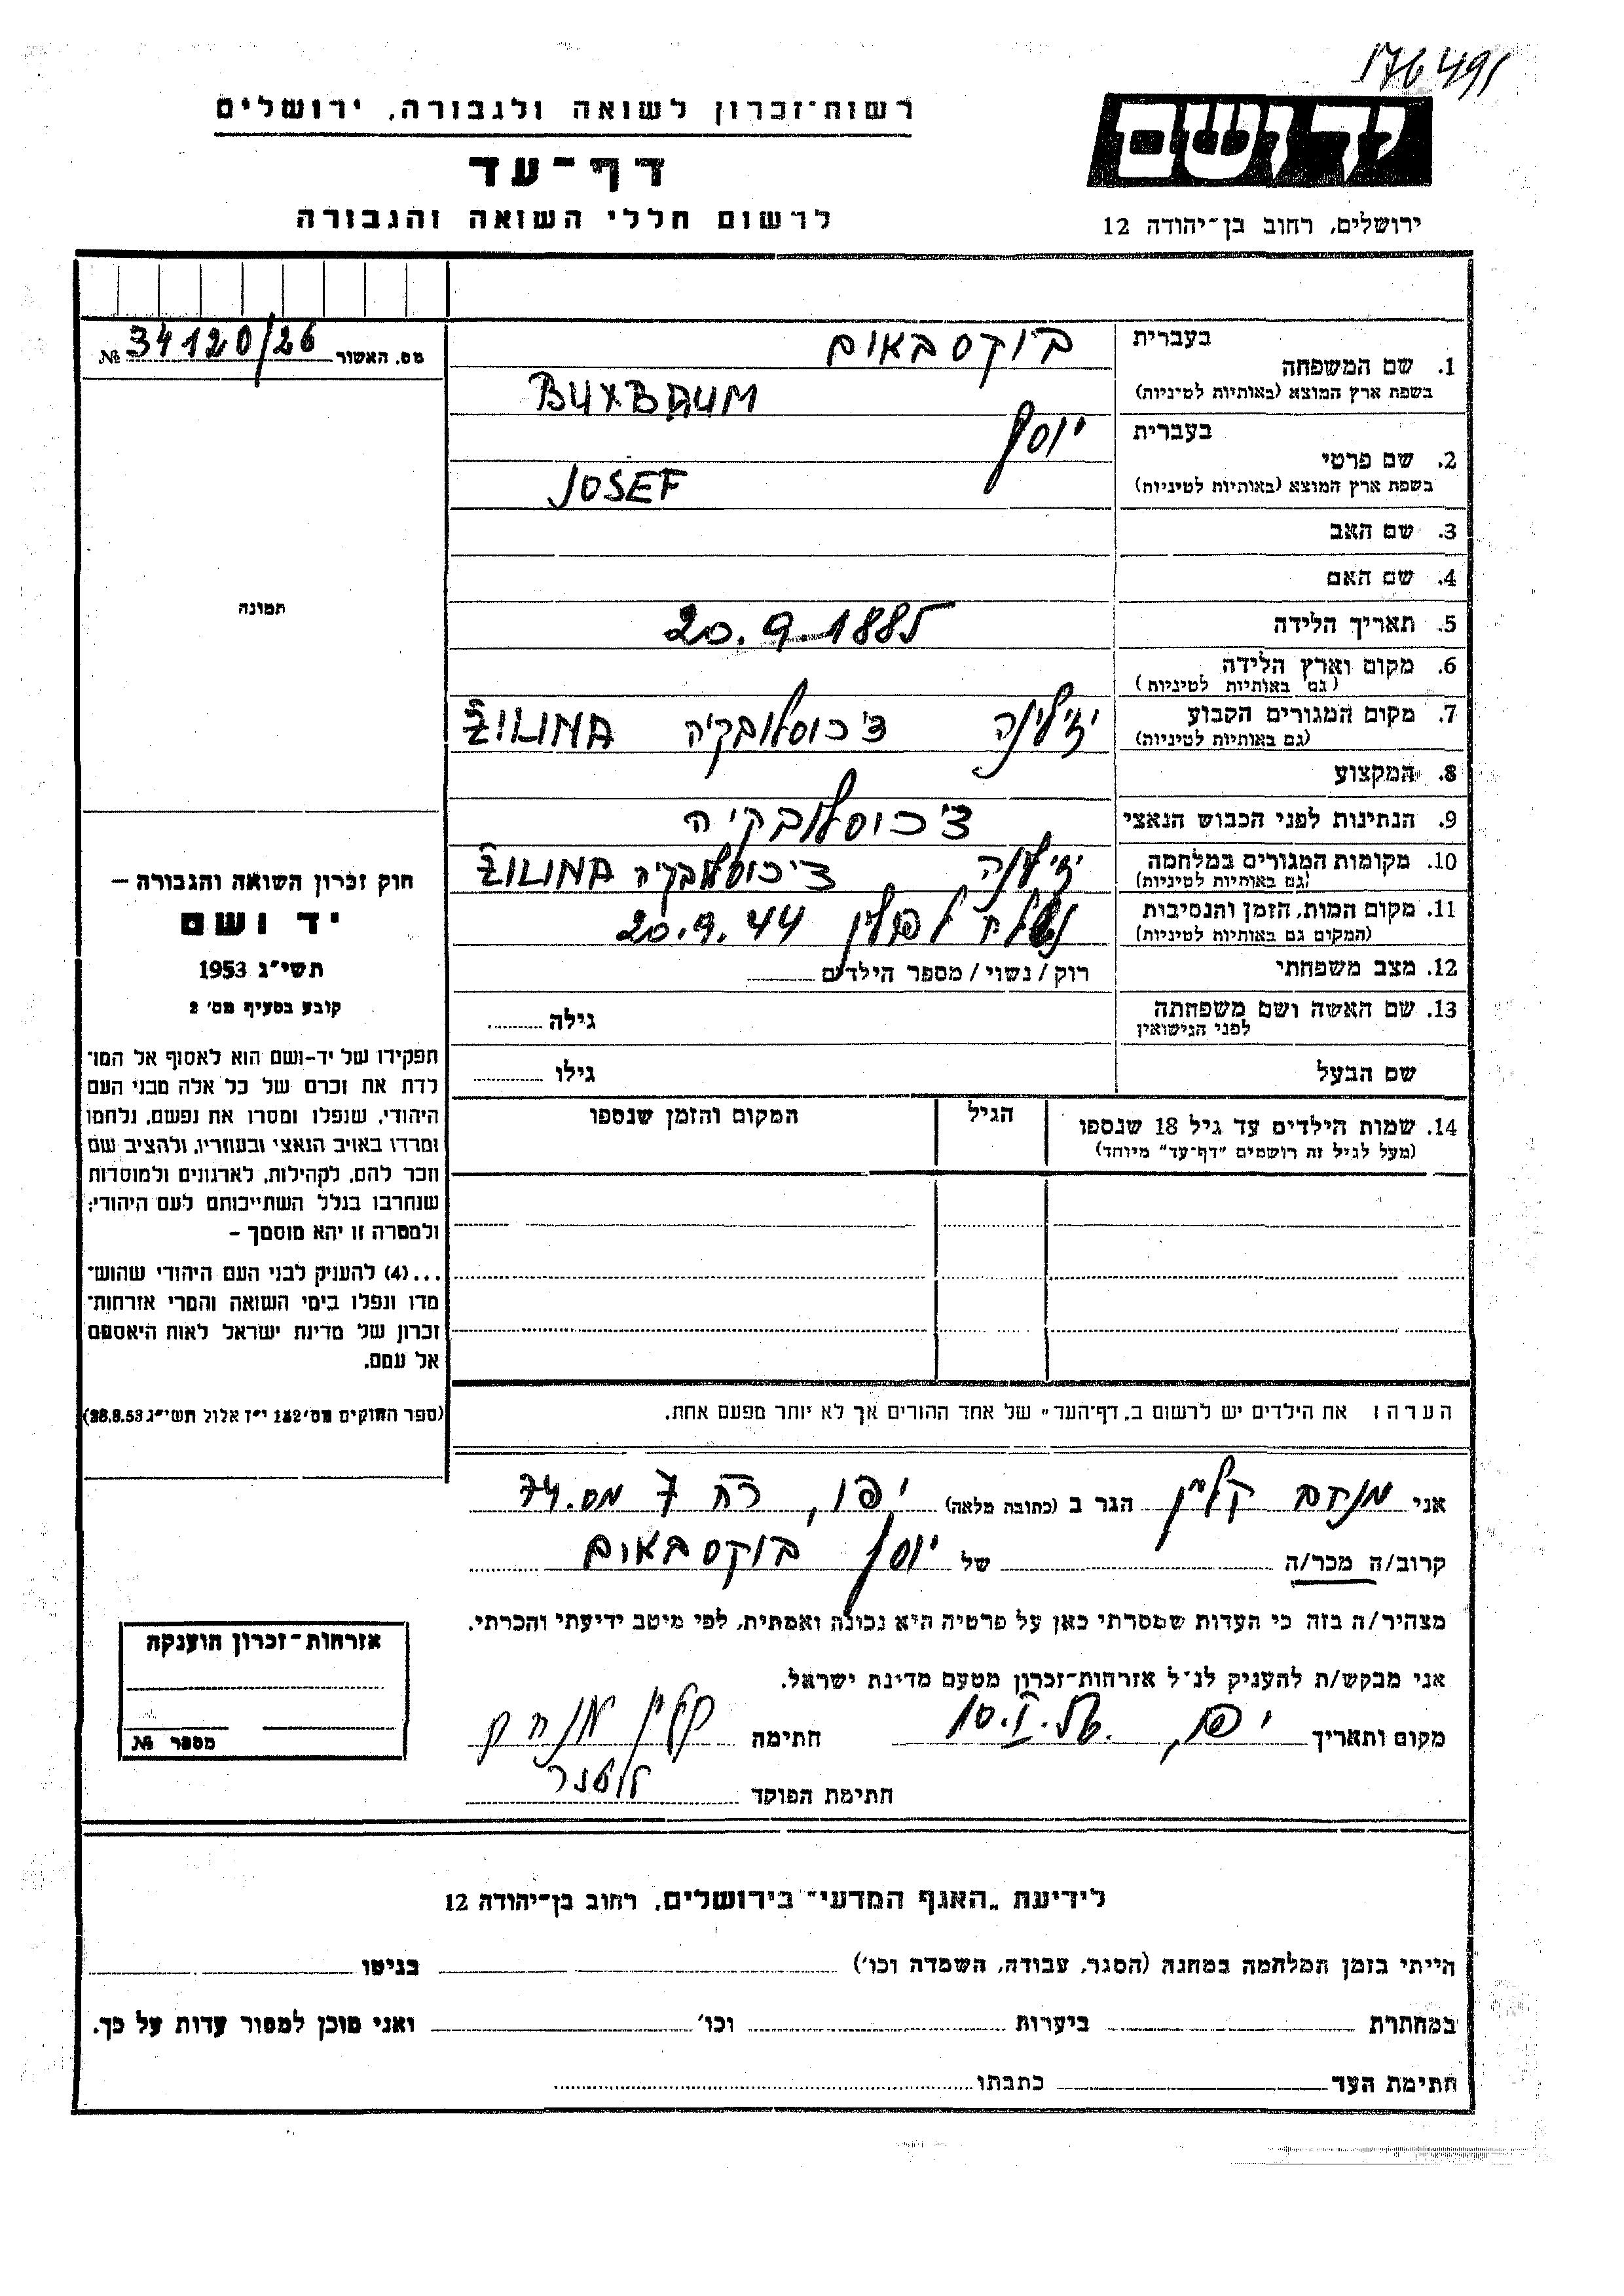 176491
רשות־זכרון לשואה ולגבורה, ירושלים
יד ושם
דף־עד
לרשום חללי השואה והגבורה
ירושלים, רחוב בן־יהודה 12
מס. האשור 34120/26 №
בעברית
1. שם המשפחה בוקסבאום
בשפת ארץ המוצא (באותיות לטיניות) BUXBAUM
בעברית יוסף
2. שם פרטי
בשפת ארץ המוצא (באותיות לטיניות) JOSEF
3. שם האב
4. שם האם
תמונה
5. תאריך הלידה 20.9.1885
6. מקום וארץ הלידה
(גם באותיות לטיניות)
7. מקום המגורים הקבוע ז'ילינה צ'כוסלובקיה ŽILINA
(גם באותיות לטיניות)
8. המקצוע
9. הנתינות לפני הכבוש הנאצי צ'כוסלובקיה
10. מקומות המגורים במלחמה ז'ילינה צ'כוסלובקיה ŽILINA
(גם באותיות לטיניות)
11. מקום המות, הזמן והנסיבות נשלח לפולין 20.9.44
(המקום גם באותיות לטיניות)
12. מצב משפחתי רוק / נשוי / מספר הילדים
13. שם האשה ושם משפחתה
לפני הנישואין
גילה
שם הבעל גילו
14. שמות הילדים עד גיל 18 שנספו הגיל המקום והזמן שנספו
(מעל לגיל זה רושמים "דף־עד" מיוחד)
חוק זכרון השואה והגבורה –
יד ושם
תשי"ג 1953
קובע בסעיף מס' 2
תפקידו של יד-ושם הוא לאסוף אל המו־
לדת את זכרם של כל אלה מבני העם
היהודי, שנפלו ומסרו את נפשם, נלחמו
ומרדו באויב הנאצי ובעוזריו, ולהציב שם
וזכר להם, לקהילות, לארגונים ולמוסדות
שנחרבו בגלל השתייכותם לעם היהודי;
ולמטרה זו יהא מוסמך –
...(4) להעניק לבני העם היהודי שהוש־
מדו ונפלו בימי השואה והמרי אזרחות־
זכרון של מדינת ישראל לאות היאספם
אל עמם.
(ספר החוקים מס' 132 י"ז אלול תשי"ג 28.8.53)
הערה: את הילדים יש לרשום ב„דף־העד" של אחד ההורים אך לא יותר מפעם אחת.
אני מנחם קליין הגר ב (כתובה מלאה) יפו, רח 7 מס. 74
קרוב/ה מכר/ה של יוסף בוקסבאום
מצהיר/ה בזה כי העדות שמסרתי כאן על פרטיה היא נכונה ואמתית, לפי מיטב ידיעתי והכרתי.
אני מבקש/ת להעניק לנ"ל אזרחות־זכרון מטעם מדינת ישראל.
מקום ותאריך יפו, 10.I.56. חתימה קליין מנחם
חתימת הפוקד
אזרחות־זכרון הוענקה
מספר №
לידיעת „האגף המדעי" בירושלים, רחוב בן־יהודה 12
הייתי בזמן המלחמה במחנה (הסגר, עבודה, השמדה וכו') בגיטו
במחתרת ביערות וכו' ואני מוכן למסור עדות על כך.
חתימת העד כתבתו